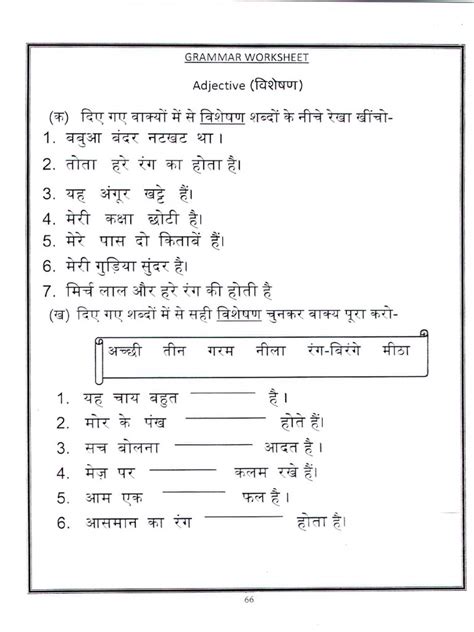 GRAMMAR WORKSHEET
Adjective (विशेषण)
(क) दिए गए वाक्यों में से विशेषण शब्दों के नीचे रेखा खींचो-
1. बबुआ बंदर नटखट था ।
2. तोता हरे रंग का होता है।
3. यह अंगूर खट्टे हैं।
4. मेरी कक्षा छोटी है।
5. मेरे पास दो किताबें हैं।
6. मेरी गुड़िया सुंदर है।
7. मिर्च लाल और हरे रंग की होती है
(ख) दिए गए शब्दों में से सही विशेषण चुनकर वाक्य पूरा करो-
अच्छी तीन गरम नीला रंग-बिरंगे मीठा
1. यह चाय बहुत ________ है ।
2. मोर के पंख ________ होते हैं।
3. सच बोलना ________ आदत है ।
4. मेज़ पर ________ कलम रखे हैं।
5. आम एक ________ फल है ।
6. आसमान का रंग ________ होता है।
66